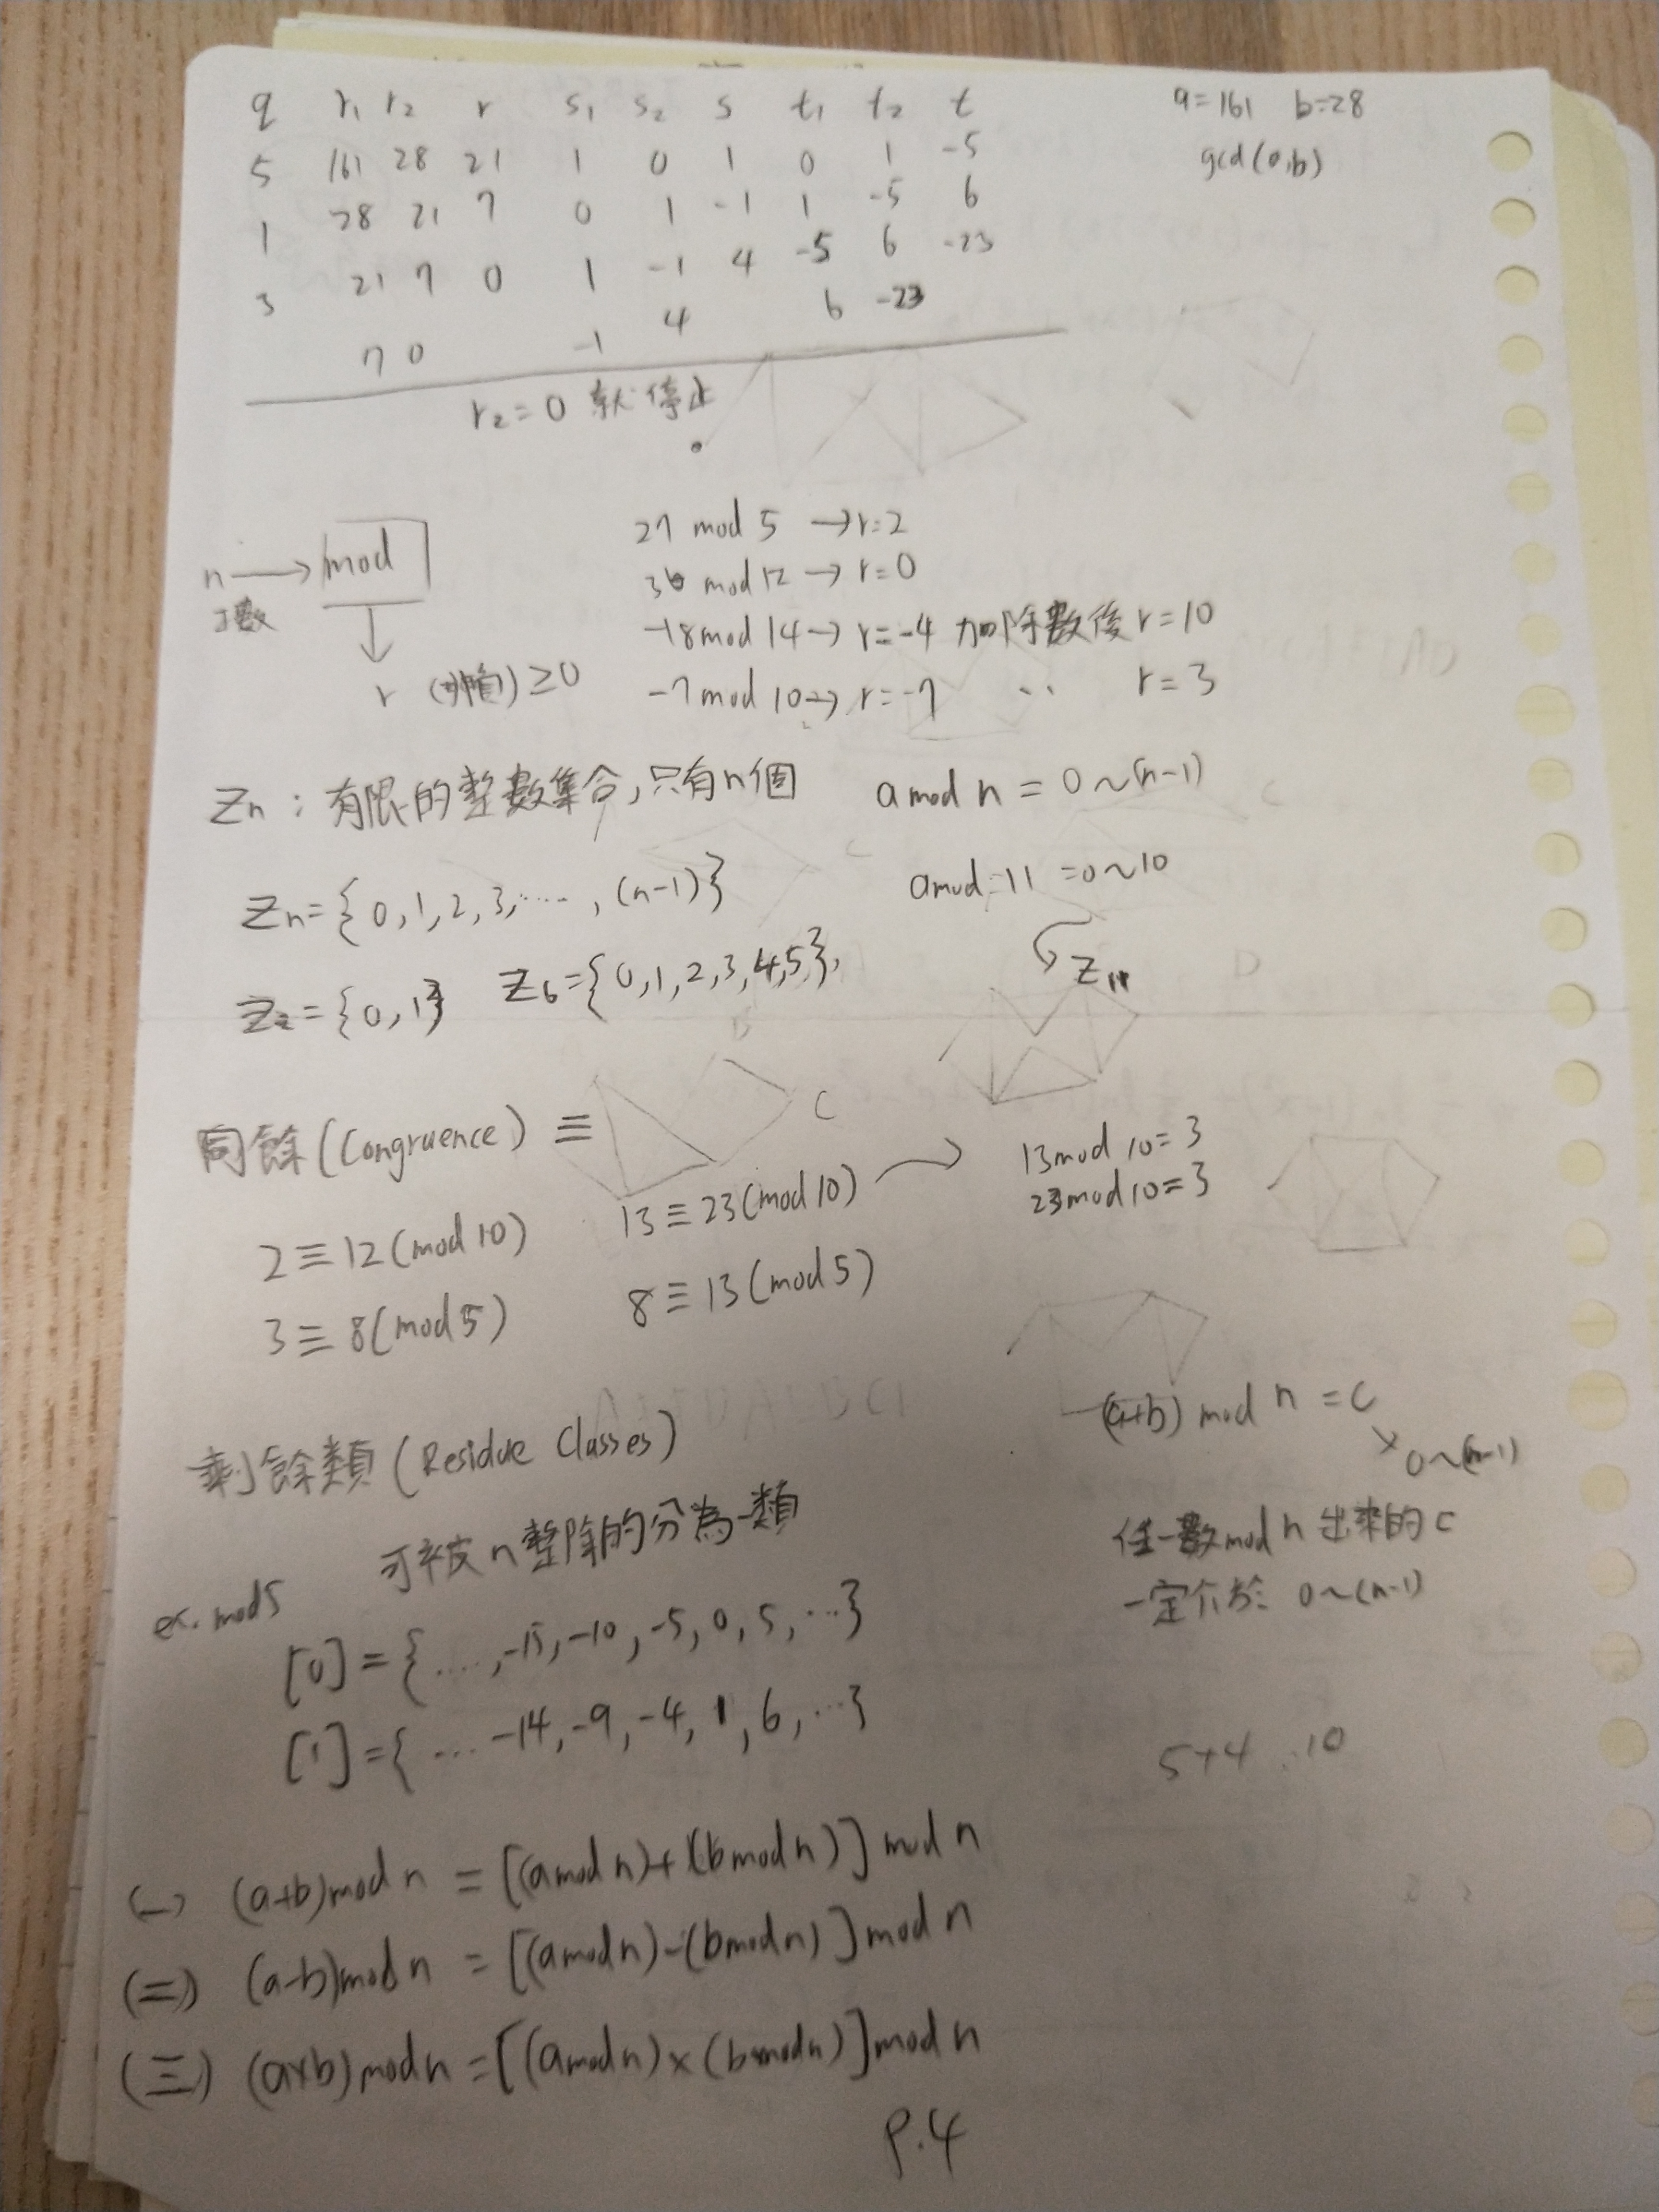 q r₁ r₂ r s₁ s₂ s t₁ t₂ t
a=161 b=28
5 161 28 21 1 0 1 0 1 -5
gcd(a,b)
1 28 21 7 0 1 -1 1 -5 6
3 21 7 0 1 -1 4 -5 6 -23
7 0 -1 4 6 -23
r₂=0 就停止
n → mod
數
↓
r ≥0
27 mod 5 → r=2
36 mod 12 → r=0
-18 mod 14 → r=-4 加除數後 r=10
-7 mod 10 → r=-7 ‥ r=3
Zn : 有限的整數集合,只有n個
a mod n = 0~(n-1)
Zn={0,1,2,3,……,(n-1)}
a mod 11 =0~10
Z₁₁
Z₂={0,1} Z₆={0,1,2,3,4,5},
同餘(Congruence) ≡
C
2≡12(mod 10) 13≡23(mod 10) →
13 mod 10=3
23 mod 10=3
3≡8(mod 5) 8≡13(mod 5)
剩餘類(Residue Classes)
(a+b) mod n =c
0~(n-1)
可被n整除的分為一類
任一數mod n 出來的c
一定介於 0~(n-1)
ex. mod5
[0]={....,-15,-10,-5,0,5,…}
[1]={… -14,-9,-4,1,6,…}
5+4 10
(一) (a+b)mod n = [(a mod n)+(b mod n)] mod n
(二) (a-b)mod n = [(a mod n)-(b mod n)] mod n
(三) (a×b)mod n = [(a mod n)×(b mod n)] mod n
P.4